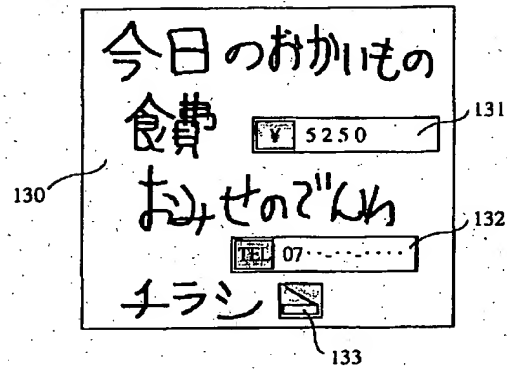 今日のおかいもの
食費 ¥ 5250 131
130
おみせのでんわ
132
TEL 07・・-・・-・・・・
チラシ
133